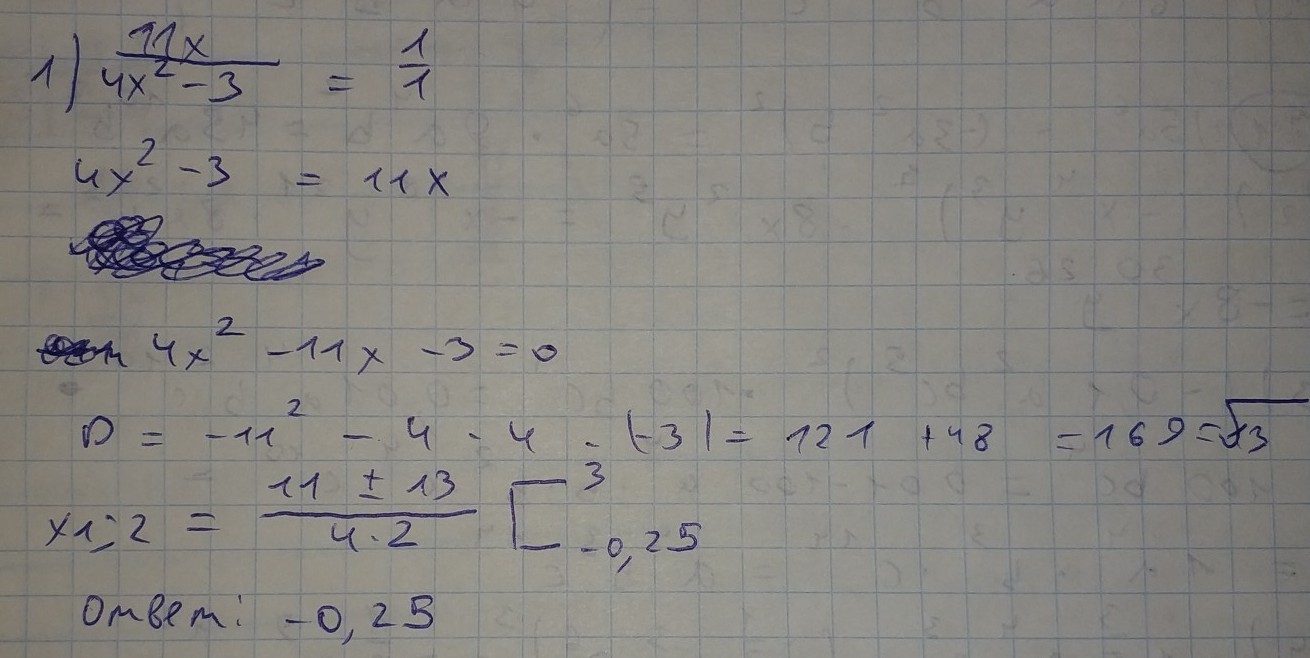 1) 11x / 4x² - 3 = 1/1
4x² - 3 = 11x
4x² - 11x - 3 = 0
D = -11² - 4 · 4 · (-3) = 121 + 48 = 169 = √13
x1;2 = 11 ± 13 / 4·2 [ 3
-0,25
Ответ: -0,25